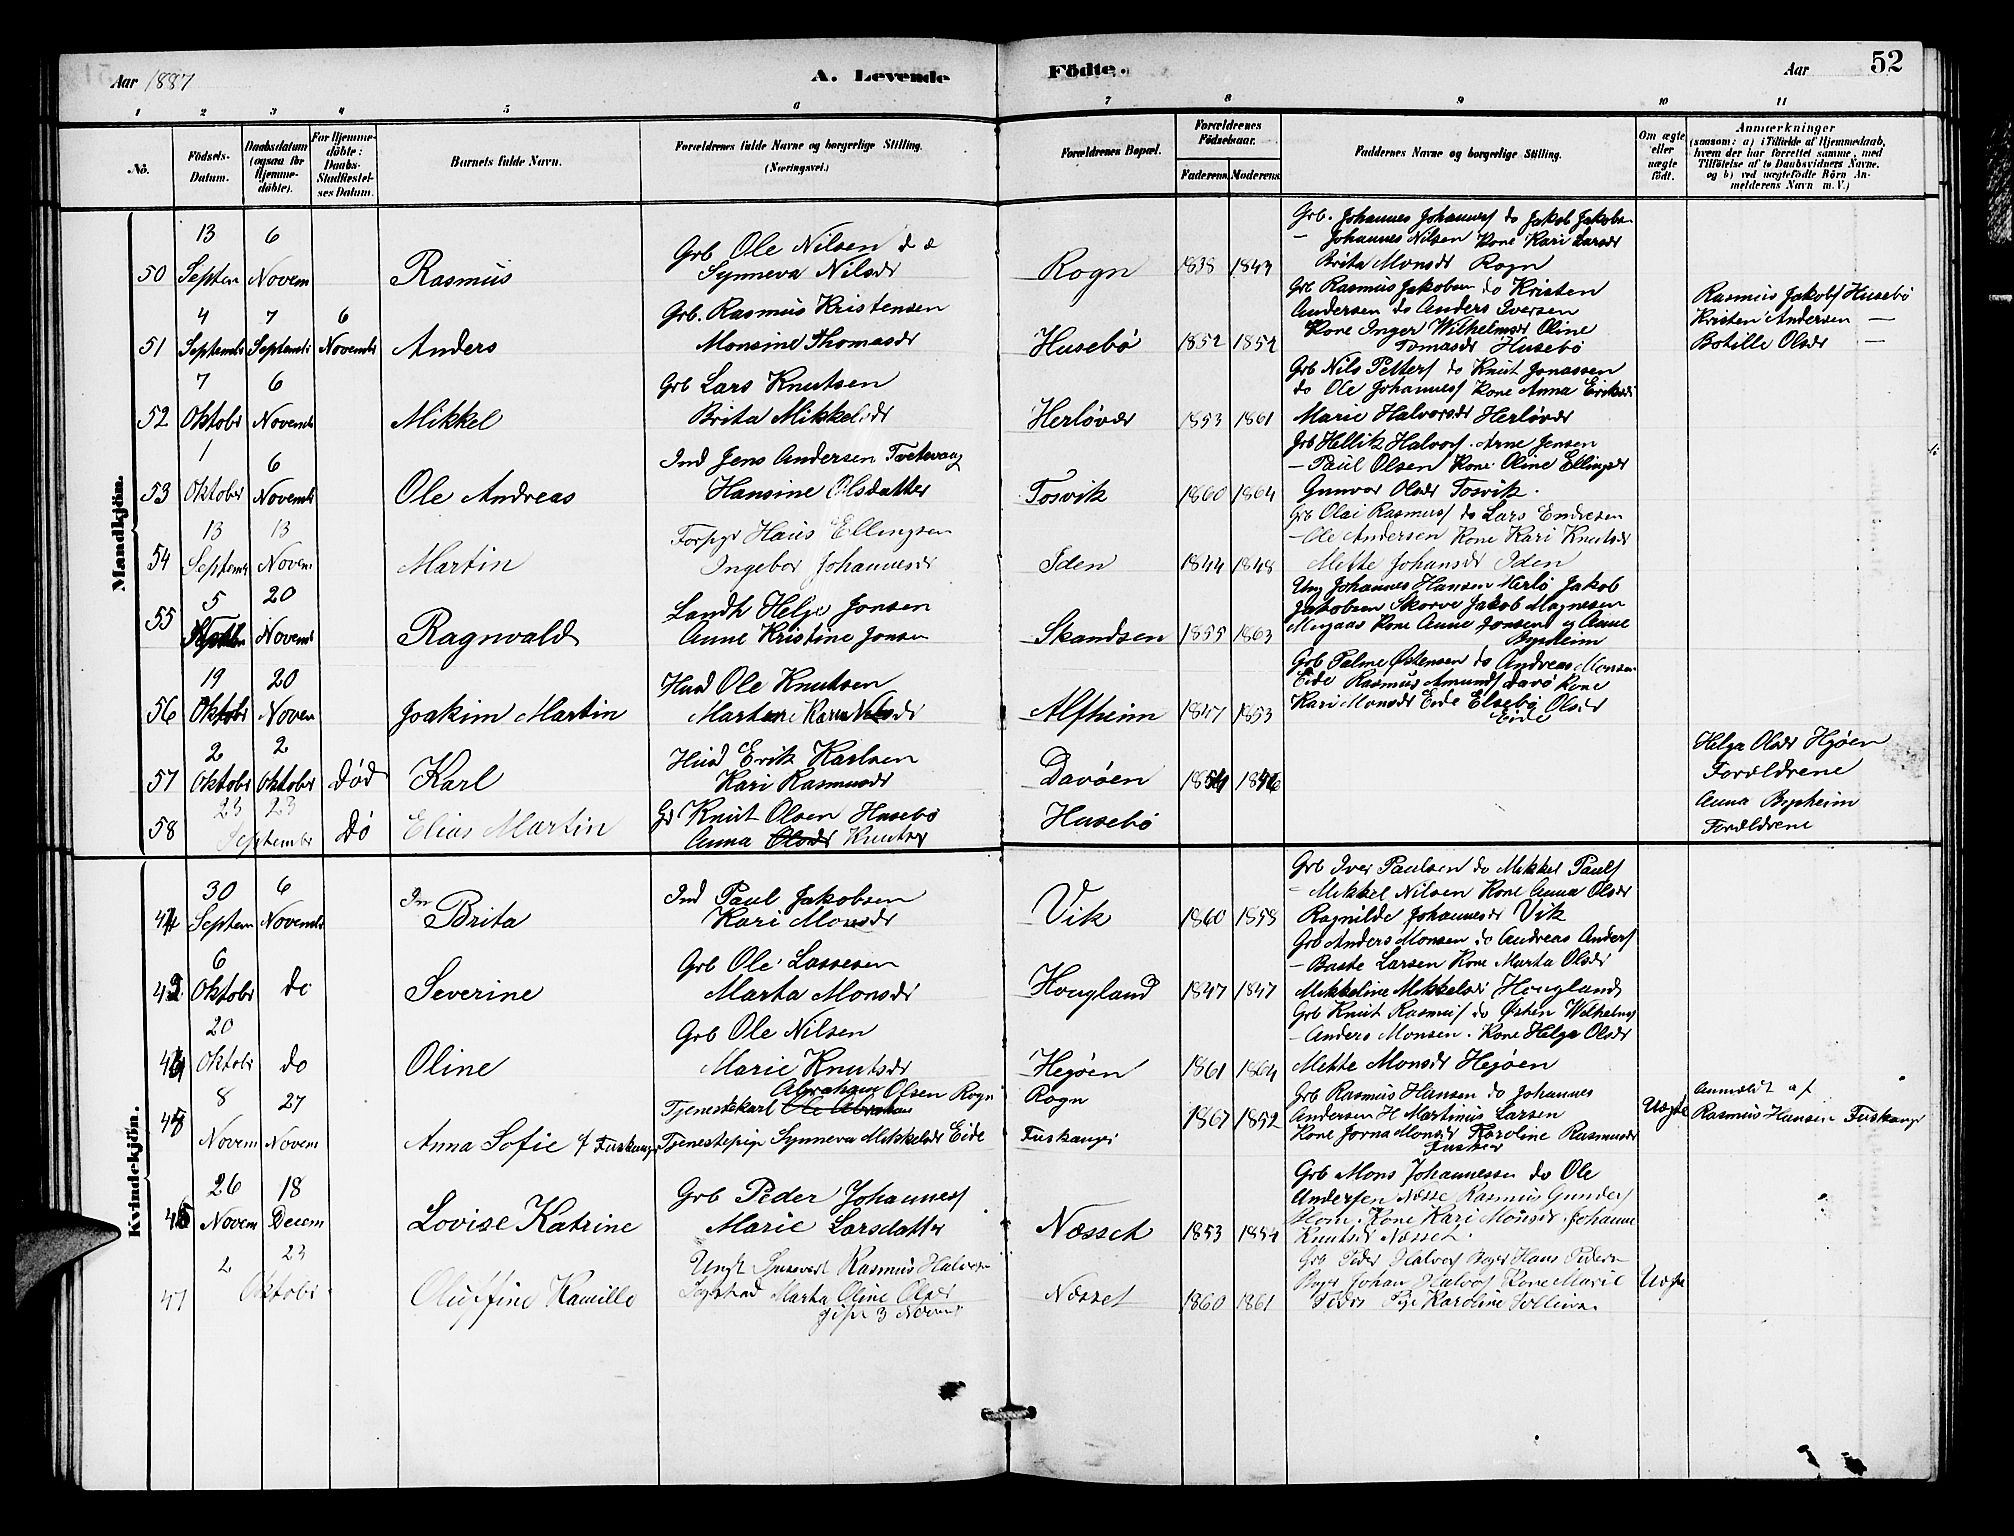 Aar 1887
A. Levende
Födte.
Aar
52
1 2 3 4 5 6 7 8 9 10 11
No.
Födsels-Datum.
Daabsdatum (ogsaa for Hjemme-döbte).
For Hjemme-döbte: Daabs-Stadfæstelses Datum.
Barnets fulde Navn.
Forældrenes fulde Navne og borgerlige Stilling. (Næringsvei.)
Forældrenes Bopæl.
Forældrenes Födselsaar.
Faderens. Moderens.
Faddernes Navne og borgerlige Stilling.
Om ægte eller uægte födt.
Anmærkninger
(saasom: a) i Tilfælde af Hjemmedaab, hvem der har forrettet samme, med Tilföielse af to Daabsvidners Navne, og b) ved uægtefödte Börn Anmelderens Navn m. V.)
Mandkjön.
50 13 Septem 6 Novem Rasmus
Grb Ole Nilsen
Synneva Nilsdr
Rogn 1838 1843
Grb. Johannes Johannesf do Jakob Jakobs
— Johannes Nilsen Kone Kari Larsdr
Brita Monsdr Rogn
51 4 Septembr 7 Septembr 6 Novembr Anders
Grb. Rasmus Kristensen
Monsine Thomasdr
Husebö 1852 1852
Grb Rasmus Jakobsen do Kristen
Andersen do Anders Iversen
Kone Inger Wilhelmsdr Oline
Tomasdr Husebö
Rasmus Jakobf Husebö
Kristen Andersen —
Botille Olsdr —
52 7 Oktobr 6 Novembr Mikkel
Grb Lars Knutsen
Brita Mikkelsdr
Herlövær 1853 1861
Grb Nils Petterf do Knut Jonassen
do Ole Johannesf Kone Anna Eriksdr
Marie Halvorsdr Herlövær
53 1 Oktober 6 Novembr Ole Andreas
Ind Jens Andersen Tvetevaag
Hansine Olsdatter
Tosvik 1860 1864
Grb Hellik Halvorf. Arne Jensen
— Paul Olsen Kone Oline Ellingsdr
Gunvor Olsdr Tosvik.
54 13 Septembr 13 Novem Martin
Forpgr Hans Ellingsen
Ingebor Johannesdr
Iden 1844 1848
Grb Olai Rasmusf do Lars Endresen
— Ole Andersen Kone Kari Knutsdr
Mette Johansdr Iden
55 5 20 Novembr Ragnvald
Landh Helge Jonsen
Anne Kristine Jonsen
Skandsen 1855 1863
Ung Johannes Hansen Herlö Jakob
Jakobsen Skorve Jakob Magnesen
Mugaas Kone Anne Jonsen og Anne
Bysheim
56 19 Oktobr 20 Novem Joakim Martin
Husd Ole Knutsen
Alfheim 1847 1853
Grb Palme Østensen do Andreas Monsen
Eide Rasmus Amundf Davö Kone
Kari Monsdr Eide Elsebö Olsdr
Eide
57 2 Oktober 2 Oktober död Karl
Husd Erik Karlsen
Kari Rasmusdr
Davöen
Helga Olsdr Hjöen
Forældrene
58 23 23 September Dö Elias Martin
Gr Knut Olsen Husebö
Anna Olsdr Knutsdr
Husebö
Anna Bysheim
Forældrene
Kvindekjön.
30 Septem 6 Novembr Brita
Ind Paul Jakobsen
Kari Monsdr
Vik 1860 1858
Grb Iver Paulsen do Mikkel Paulf
— Mikkel Nilsen Kone Anna Olsdr
Ragnilde Johannesdr Vik
6 Oktobr do Severine
Grb Ole Lassesen
Marta Monsdr
Hougland 1847 1847
Grb Anders Monsen do Andreas Anderf
— Baste Larsen Kone Marta Olsdr
Mikkeline Mikkelsdr Hougland
20 Oktobr do Oline
Grb Ole Nilsen
Marie Knutsdr
Hejöen 1861 1864
Grb Knut Rasmusf do Østen Wilhelmf
— Anders Monsen. Kone Helga Olsdr
Mette Monsdr Hejöen
8 Novem 27 Novem Anna Sofie f Fuskanger
Abraham Olsen Rogn
Tjenestekarl Ole Abraham
Tjenestepige Synneva Mikkelsdr Eide
Rogn
Fuskanger 1867 1852
Grb Rasmus Hansen do Johannes
Andersen H Martinus Larsen
Kone Jorna Monsdr Karoline Rasmusdr
Uægte
Anmeldt af
Rasmus Hansen Fuskanger
26 Novem 18 Decem Lovise Katrine
Grb Peder Johannesf
Marie Larsdatter
Næsset 1853 1854
Grb Mons Johannessen do Ole
Andersen Næsse Rasmus Gunderf
Kone Kari Monsdr Johanne
Knutsdr Næsset.
47 2 23 Oktober Oluffine Kamille
Rasmus Halvorsen
Marta Oline Olsdr
Næsset 1860 1861
Grb Peder Halvorf Hans Pedersen
Johan Halvorf Kone Marie
Karoline
Uægte